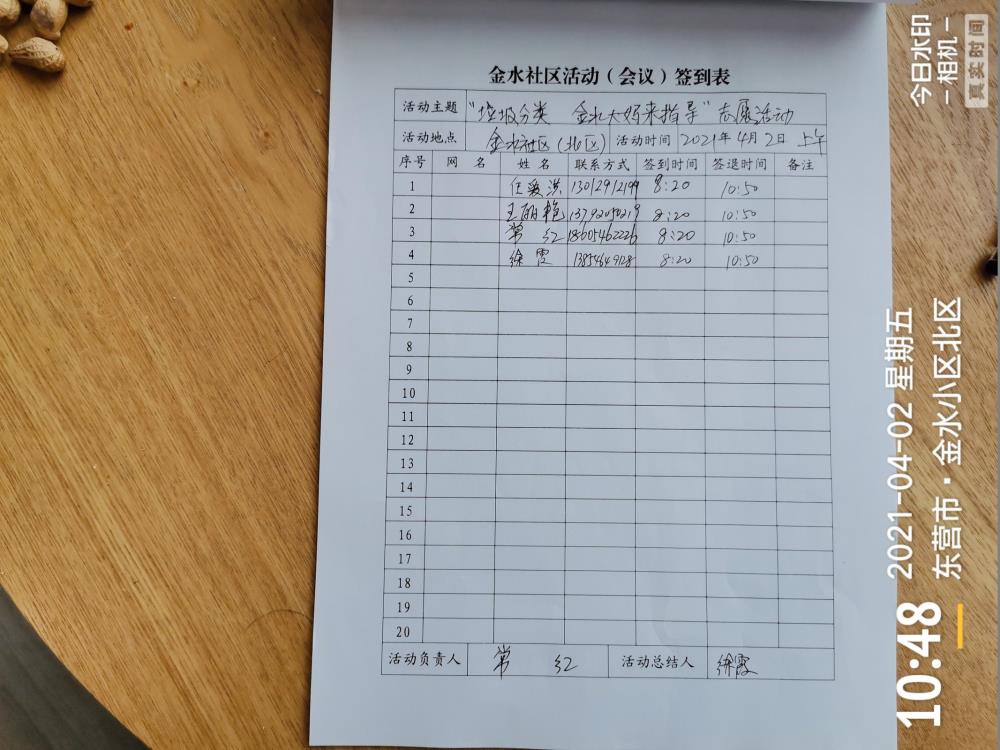 金水社区活动（会议）签到表
活动主题 "垃圾分类 金水大妈来指导"志愿活动
活动地点 金水社区（北区） 活动时间 2021年4月2日 上午
序号 网 名 姓 名 联系方式 签到时间 签退时间 备注
1 任爱洪 13012912199 8:20 10:50
2 王丽艳 13792050219 8:20 10:50
3 常 红 18605462226 8:20 10:50
4 徐 霞 8:20 10:50
5
6
7
8
9
10
11
12
13
14
15
16
17
18
19
20
活动负责人 常 红 活动总结人 徐霞
今日水印
-相机-
真实时间
10:48
2021-04-02 星期五
东营市·金水小区北区